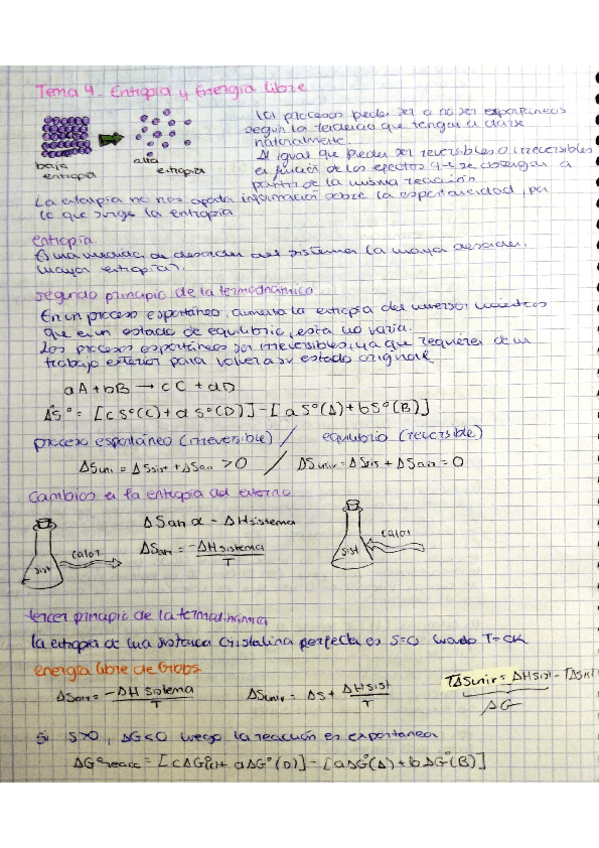 Tema 4. Entropía y Energía libre
baja entropía
alta entropía
los procesos pueden ser o no ser espontáneos
según la tendencia que tengan a darse
naturalmente.
Al igual que pueden ser reversibles o irreversibles
en función de los efectos que se obtengan a
partir de la misma reacción
La entalpia no nos aporta información sobre la espontaneidad, por
lo que surge la entropia
entropía.
Es una medida de desorden del sistema (a mayor desorden,
mayor entropía).
segundo principio de la termodinámica
En un proceso espontáneo, aumenta la entropía del universo; mientras
que en un estado de equilibrio, esta no varia.
Los procesos espontáneos son irreversibles, ya que requieren de un
trabajo exterior para volver a su estado original
aA + bB → cC + dD
ΔS° = [c S°(C) + d S°(D)] - [a S°(A) + b S°(B)]
proceso espontáneo (irreversible) / equilibrio (reversible)
ΔSuni = ΔSsist + ΔSalr > 0 / ΔSuniv = ΔSsis + ΔSalr = 0
cambios en la entropía del entorno
ΔSalr α - ΔHsistema
ΔSalr = -ΔHsistema / T
sist
calor
sist
calor
tercer principio de la termodinámica
la entropía de una sustancia cristalina perfecta es S=0 cuando T=0K
energía libre de Gibbs
ΔSalr = -ΔH sistema / T
ΔSuniv = ΔS + ΔHsist / T
TΔSuniv = ΔHsist - TΔSsist
ΔG
Si S>0, ΔG<0 luego la reacción es espontanea
ΔG°reacc = [cΔG°(C) + dΔG°(D)] - [aΔG°(A) + bΔG°(B)]